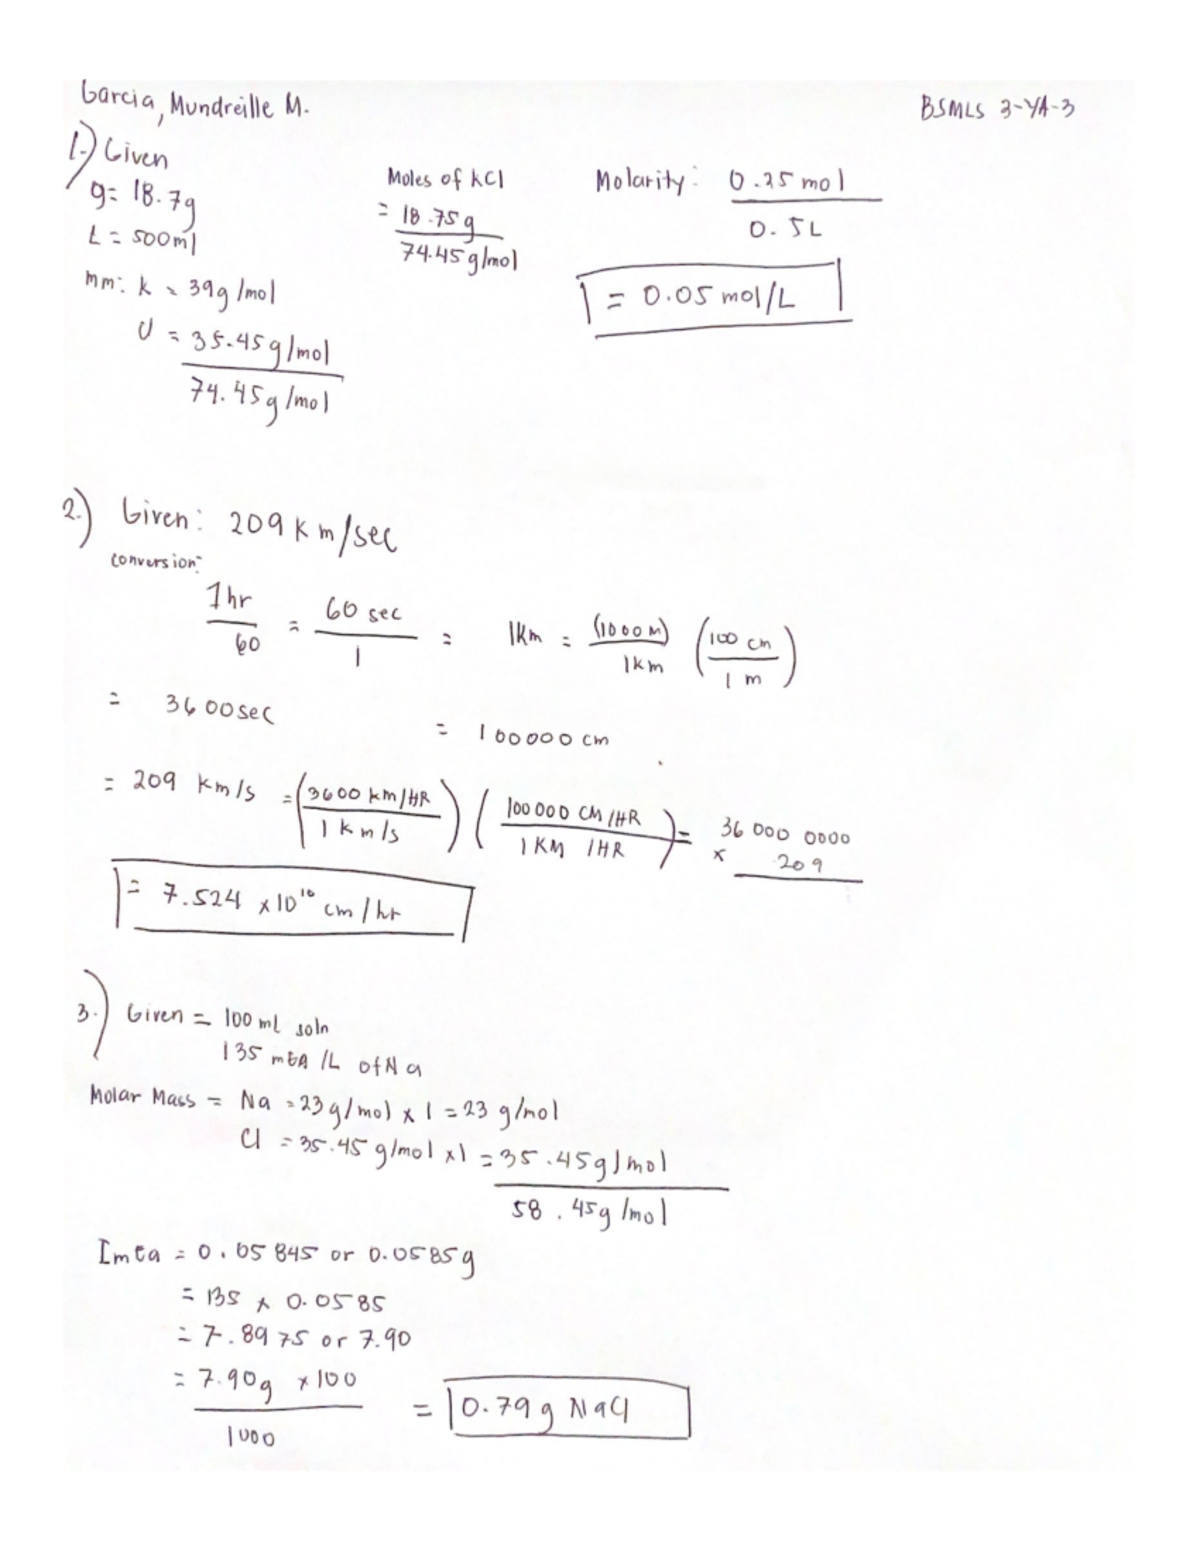 Garcia, Mundreille M.
BSMLS 3-YA-3
1.) Given
g= 18.7g
L = 500ml
mm: K = 39g/mol
Cl = 35.45g/mol
74.45g/mol
Moles of KCl
= 18.75g
74.45g/mol
Molarity: 0.25 mol
0.5L
= 0.05 mol/L
2.) Given: 209 Km/sec
conversion:
1hr = 60 sec = 1Km = (1000M) (100 cm)
60 1 1km 1 m
= 3600sec
= 100000 cm
= 209 km/s = (3600 km/HR) (100000 CM/HR) = 36 000 0000
1 km/s 1 KM /HR x 209
= 7.524 x10¹⁰ cm/hr
3.) Given = 100 ml soln
135 mEq /L of Na
Molar Mass = Na = 23g/mol x 1 = 23 g/mol
Cl = 35.45 g/mol x1 = 35.45g/mol
58.45g/mol
1mEq = 0.05845 or 0.0585g
= 135 x 0.0585
= 7.8975 or 7.90
= 7.90g x100
1000
= 0.79g NaCl